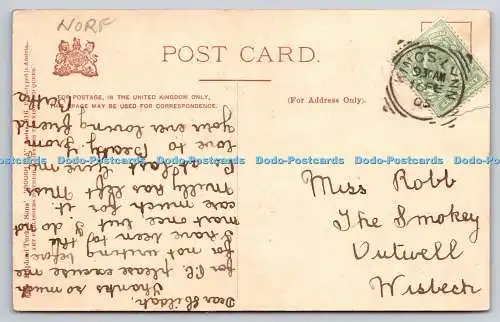 NORF
POST CARD.
FOR POSTAGE, IN THE UNITED KINGDOM ONLY,
PAGE MAY BE USED FOR CORRESPONDENCE.
(For Address Only).
KINGS LYNN
AM
FE
05
Miss Robb
The Smokey
Outwell
Wisbech
Dear Hildah,
Thanks so much
for P.C. please excuse me
for not writing before
I have been to the
most once but I do not
care much for it.
has left Miss
at last Give my
love to Becky from
your ever loving friend
Dodo-Postcards Dodo-Postcards Dodo-Postcards Dodo-Postcards Dodo-Postcards Dodo-Postcards